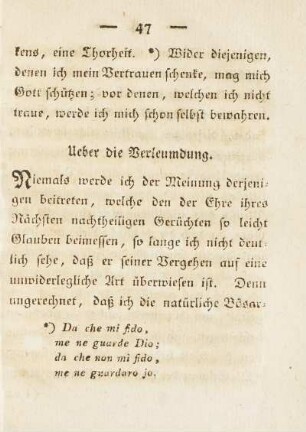 — 47 —
kens, eine Thorheit. *) Wider diejenigen,
denen ich mein Vertrauen schenke, mag mich
Gott schützen; vor denen, welchen ich nicht
traue, werde ich mich schon selbst bewahren.
Ueber die Verleumdung.
Niemals werde ich der Meinung derjeni-
gen beitreten, welche den der Ehre ihres
Nächsten nachtheiligen Gerüchten so leicht
Glauben beimessen, so lange ich nicht deut-
lich sehe, daß er seiner Vergehen auf eine
unwiderlegliche Art überwiesen ist. Denn
ungerechnet, daß ich die natürliche Bösar-
*) Da che mi fido,
me ne guarde Dio;
da che non mi fido,
me ne guardaro jo.